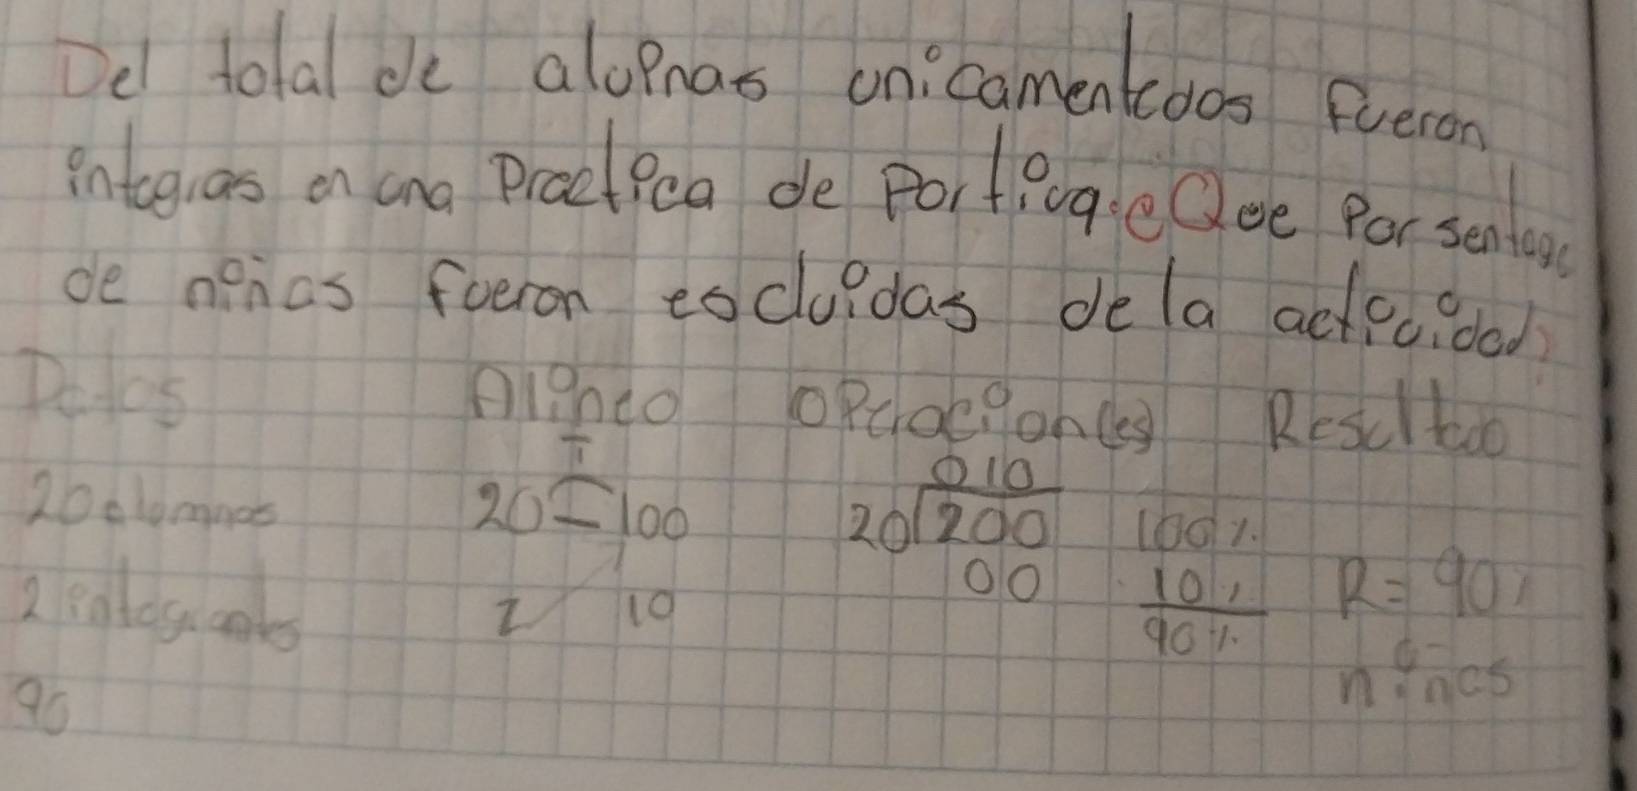 Del total de alupnas unicamentedos fueron
integras en una practica de Portiva.eQue Porsentage
de ninas fueron escluidas dela actividad?
Datos Alineo operacion(es) Resultado
÷ 010
20 alumnas 20 = 100 20 200 100%
00 10% R= 90%
2 integrantes 2 10 90% niñas
90